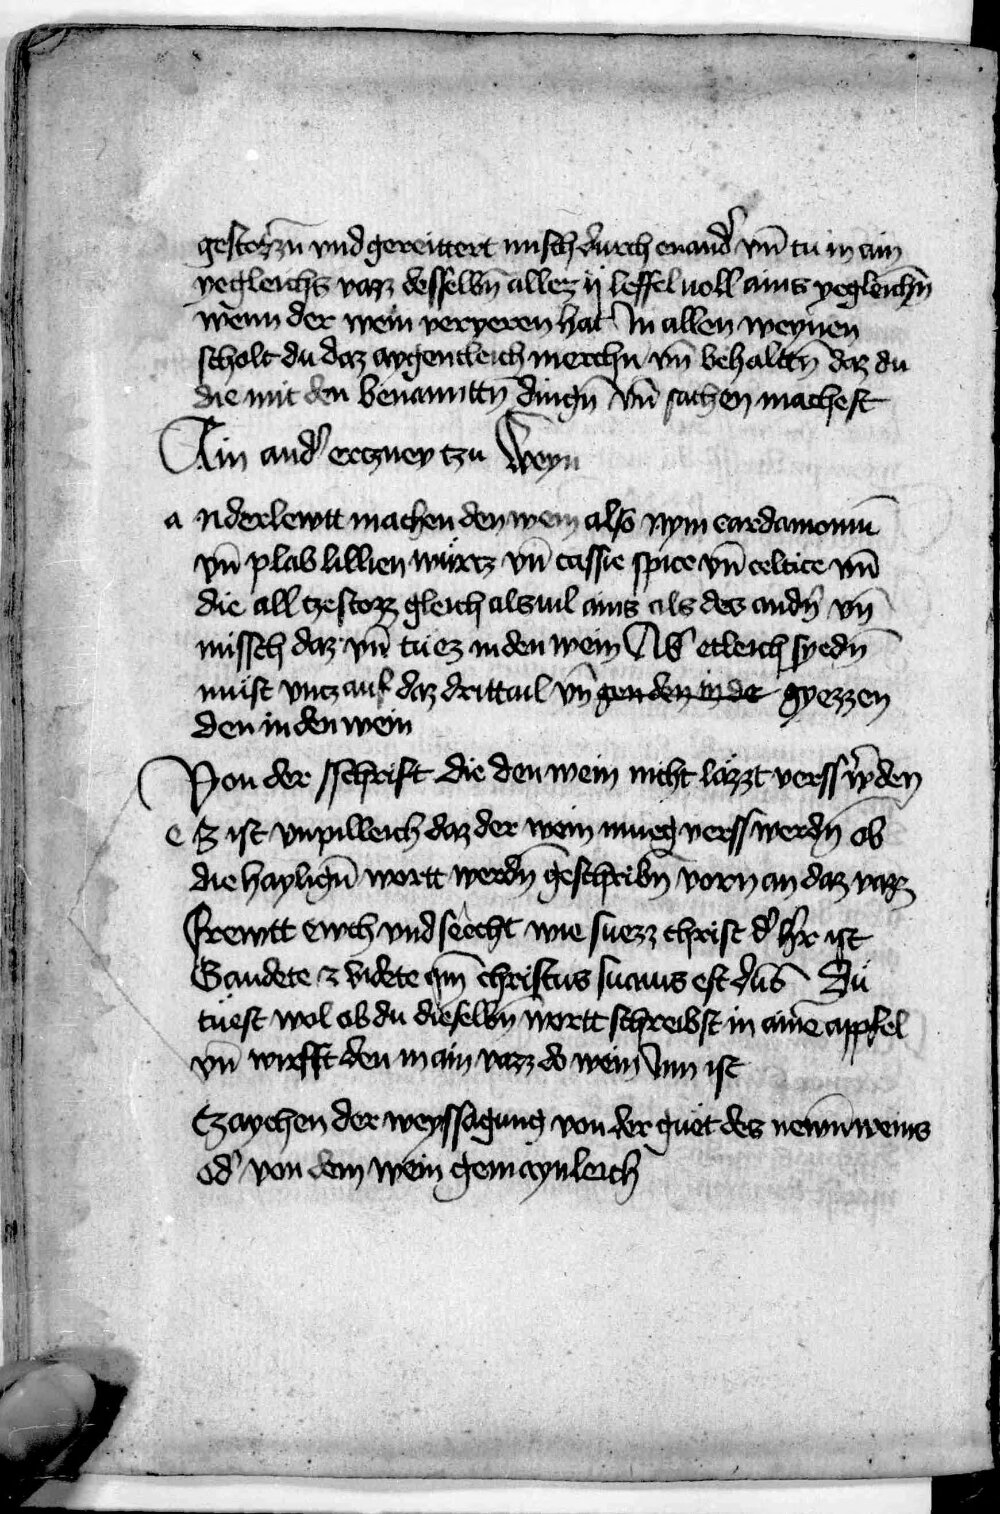 gestozzn̄ vnd gereittert misch durch enand᷑ vn̄ tu in ain
yegleichs vazz desselbn̄ allez ij leffel uoll ains yegleichn̄
wenn der wein veryeren hat In allen weynen
scholt du daz aygentleich merchn vn̄ behaltn̄ daz du
die mit den benanttn̄ dingn̄ vn̄ sachen machest
Ain and᷑ ertzney tzu Weyn
a nderlewtt machen den wein also Nym cardamomū
vn̄ plab lillien würtz vn̄ cassie spice vn̄ celtice vn̄
die all tzestozz gleich alsuil ains als des andn̄ vn̄
missch daz vn̄ tu ez in den wein Ab᷑ etleich syedn̄
must vntz auf daz drittail vn̄ gyezzen
den in den wein
Von der sschrift die den wein nicht läzzt verss w᷑den
e Z ist vnpilleich daz der wein mueg verss werdn̄ ob
die haylign̄ wortt werdn̄ geschribn̄ vorn an daz vazz
Frewtt ewch vnd seecht wie suezz christ d᷑ h᷑r ist
Gaudete ⁊ videte qm̄ christus suauis est dn̄s Du
tuest wol ob du dieselbn̄ wortt schreibst in aine̅ appfel
vn̄ wirfft den in ain vazz do wein Inn ist
Tzaychen der weyssagung von der guet des newn̄ weins
od᷑ von dem wein gemaynleich